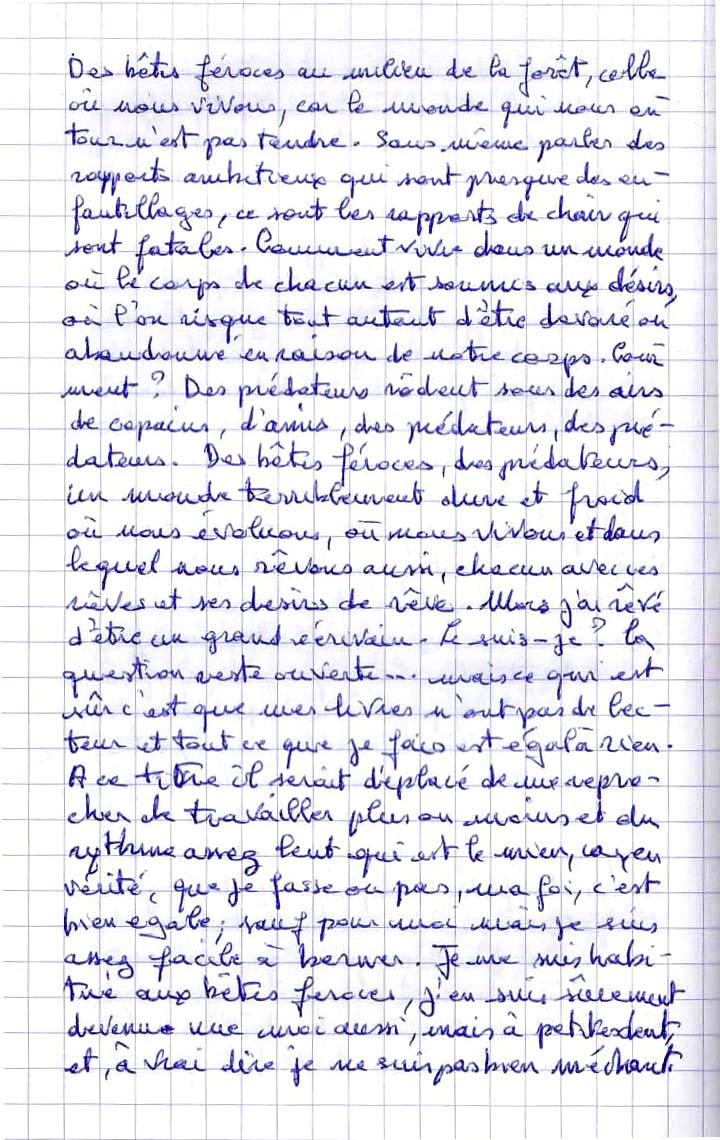 Des bêtes féroces au milieu de la forêt, celle
où nous vivons, car le monde qui nous en
toure n'est pas tendre. Sans même parler des
rapports ambitieux qui sont presque des en-
fantillages, ce sont les rapports de chair qui
sont fatales. Comment vivre dans un monde
où le corps de chacun est soumis aux désirs,
où l'on risque tout autant d'être dévoré ou
abandonné en raison de notre corps. Com
ment ? Des prédateurs rôdent sous des airs
de copains, d'amis, des prédateurs, des pré-
dateurs. Des bêtes féroces, des prédateurs,
un monde terriblement dure et froid
où nous évoluons, où nous vivons et dans
lequel nous rêvons aussi, chacun avec ses
rêves et ses desirs de rêve. Alors j'ai rêvé
d'être un grand écrivain. Le suis-je ? la
question reste ouverte... mais ce qui est
sûr c'est que mes livres n'ont pas de lec-
teur et tout ce que je fais est égal à rien.
A ce titre il serait déplacé de me repro-
cher de travailler plus ou moins et du
rythme assez lent qui est le mien, car en
vérité, que je fasse ou pas, ma foi, c'est
bien egale; sauf pour moi mais je suis
assez facile à berner. Je me suis habi-
tué aux bêtes feroces, j'en suis sûrement
devenu une moi aussi, mais à petites dents,
et, à vrai dire je ne suis pas bien méchant.